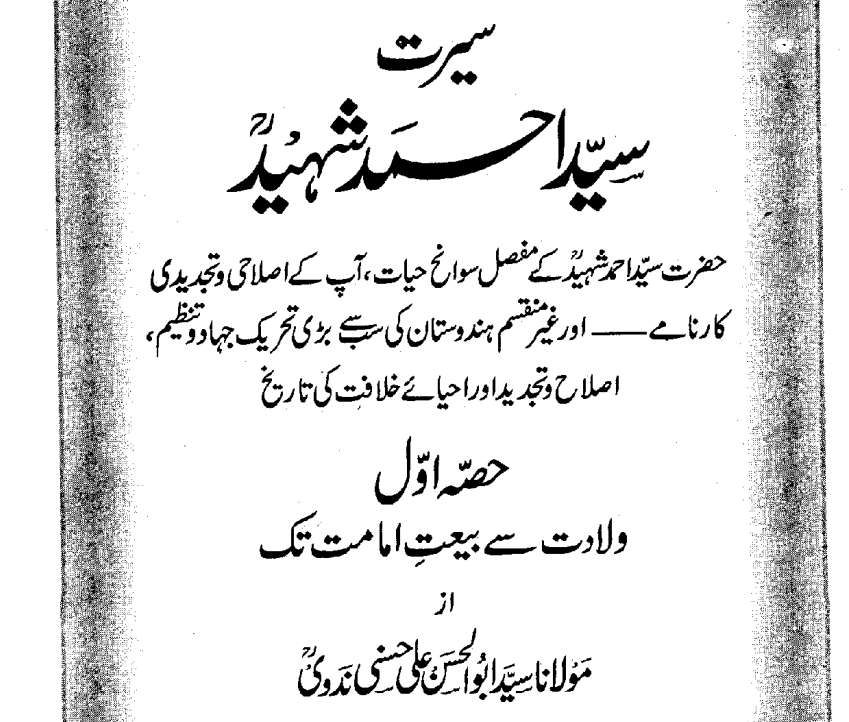 سیرت
سیّد احمد شہیدؒ
حضرت سیّد احمد شہیدؒ کے مفصل سوانح حیات، آپ کے اصلاحی و تجدیدی
کارنامے —— اور غیر منقسم ہندوستان کی سب سے بڑی تحریک جہاد و تنظیم،
اصلاح و تجدید اور احیائے خلافت کی تاریخ
حصّہ اوّل
ولادت سے بیعتِ امامت تک
از
مولانا سیّد ابوالحسن علی حسنی ندویؒ